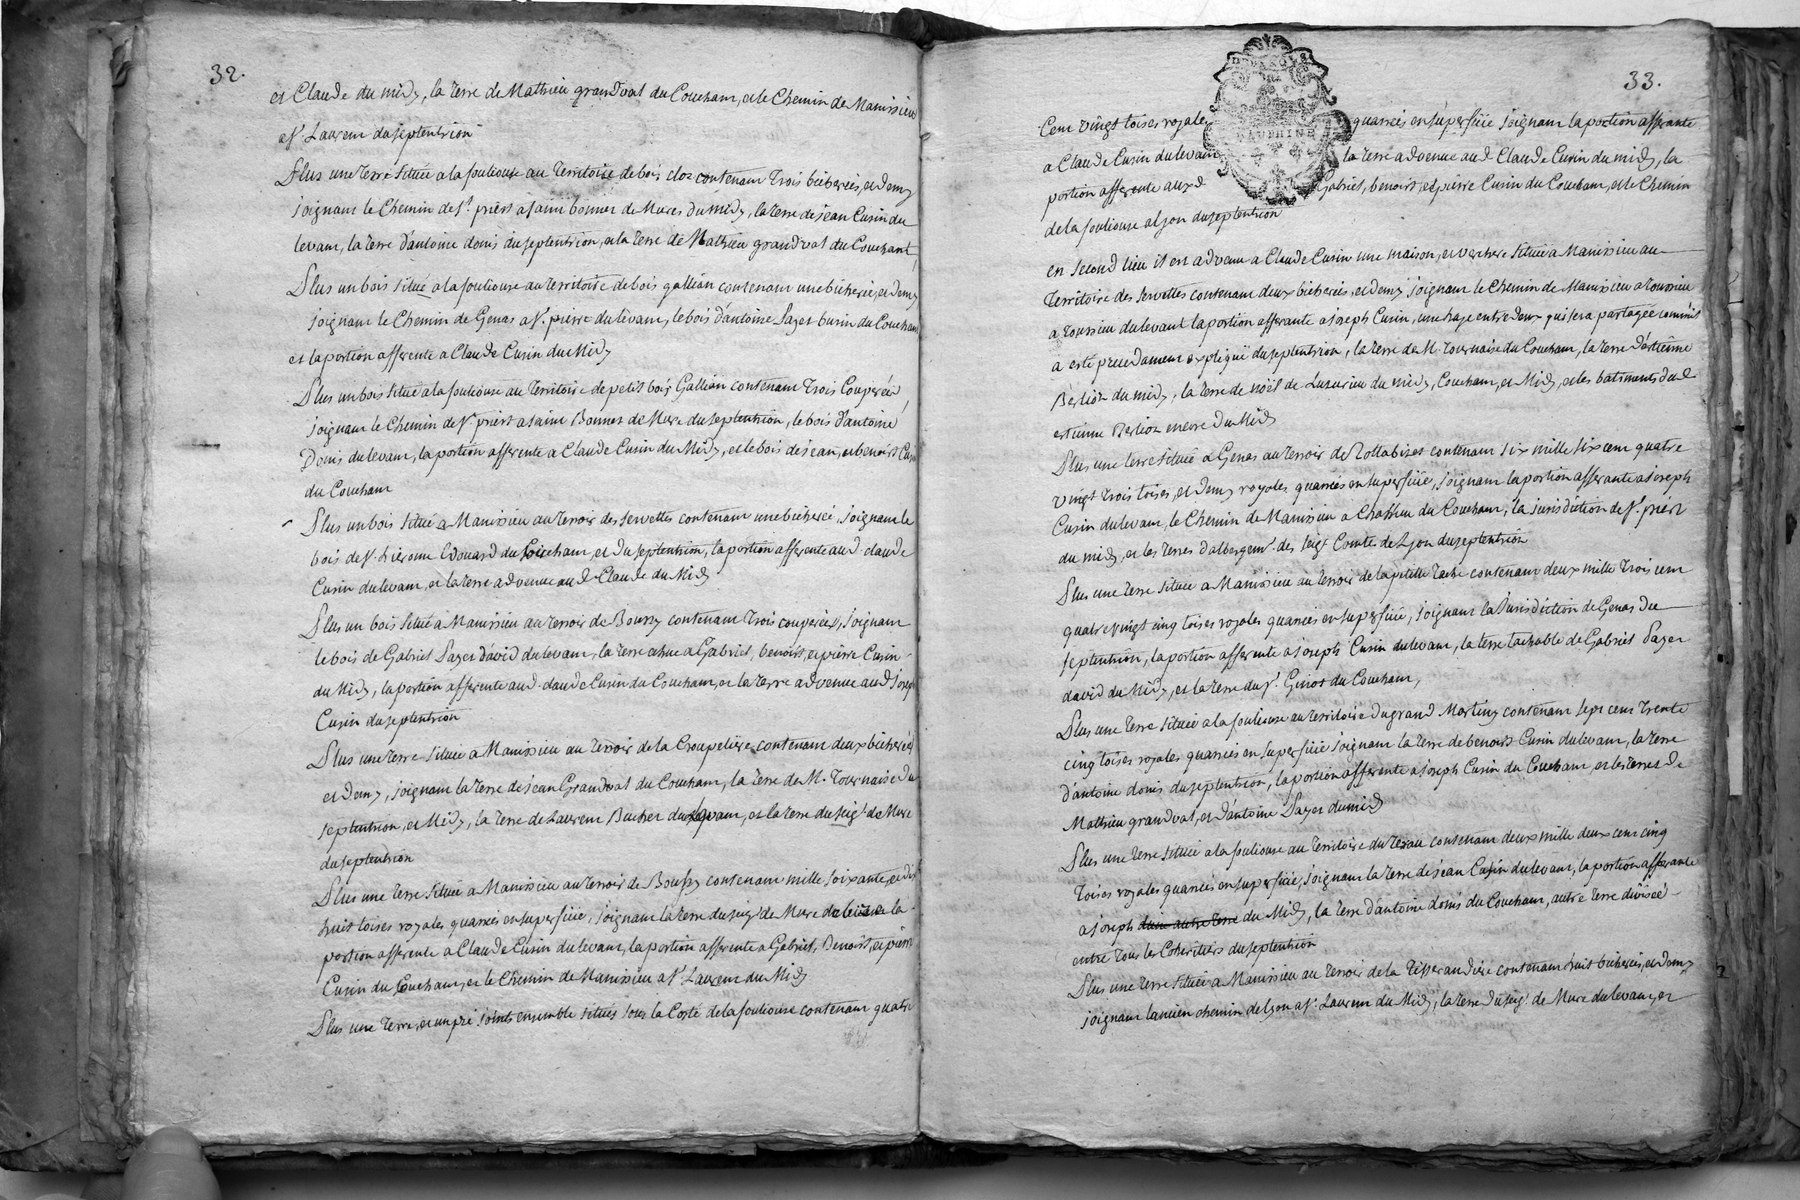 32.
et Claude du midy, la terre de Mathieu grandval du Couchant, et le Chemin de Manissieu
a St. Laurent du septentrion
Plus une terre située a la fouliouse au territoire de bois clos contenant trois bicherées, et demy
joignant le Chemin de St. priest a saint bonnet de Mures du midy, la terre de jean Cusin du
levant, la terre d'antoine donis du septentrion, et la terre de Mathieu grandval du Couchant,
Plus un bois situé a la fouliouse au territoire de bois gallian contenant une bicherée, et demy
joignant le Chemin de Genas a St. pierre du levant, le bois d'antoine Payet burin du Couchant
et la portion afferente a Claude Cusin du Midy
Plus un bois situé a la fouliouse au territoire de petit bois Gallian contenant trois Couperées,
joignant le Chemin de St priest a saint Bonnet de Mure du septentrion, le bois d'antoine
Donis du levant, la portion afferente a Claude Cusin du Midy, et le bois de jean, et benoist Cusin
du Couchant
Plus un bois situé a Manissieu au terroir des servettes contenant une bicherée, joignant le
bois de St. hierome Edouard du Couchant, et du septentrion, la portion afferente aud. claude
Cusin du levant, et la terre advenue aud Claude du Midy
Plus un bois situé a Manissieu au terroir de Boussy contenant trois couperées, joignant
le bois de Gabriel Payet david du levant, la terre echue a Gabriel, benoist, et pierre Cusin
du Midy, la portion afferente aud. claude Cusin du Couchant, et la terre advenue aud joseph
Cusin du septentrion
Plus une terre située a Manissieu au terroir de la Croupetiere contenant deux bicherées
et demy, joignant la terre de jean Grandval du Couchant, la terre de M. Tournaise du
septentrion, et Midy, la terre de Laurent Buchet du levant, et la terre du seigr. de Mure
du septentrion
Plus une terre située a Manissieu au terroir de Boussy contenant mille soixante, et dix
huit toises royales quarrées en superficie, joignant la terre du seigr. de Mure la
portion afferente a Claude Cusin du levant, la portion afferente a Gabriel, Benoist, et pierre
Cusin du Couchant, et le Chemin de Manissieu a St Laurent du Midy
Plus une terre, et un pré joints ensemble situés sous la Coste de la fouliouse contenant quatre
33.
DAUPHINE
Cent vingt toises royales quarrées en superficie joignant la portion afferante
a Claude Cusin du levant la terre advenue aud Claude Cusin du midy, la
portion afferente auxd Gabriel, benoist, et pierre Cusin du Couchant, et le Chemin
de la fouliouse a Lyon du septentrion
en second lieu il est advenu a Claude Cusin une maison, et verchere située a Manissieu au
territoire des servettes contenant deux bicherées, et demy joignant le Chemin de Manissieu a toussieu
a toussieu du levant la portion afferante a joseph Cusin, une haye entre deux qui sera partagée comme
a esté precedament expliqué du septentrion, la terre de M. Tournaise du Couchant, la terre d'estienne
Berlioz du midy, la terre de noël de Luzurieu du midy, Couchant, et Midy, et les batiments dud
estienne Berlioz encore du Midy
Plus une terre située a Genas au terroir de Rottabizet contenant six mille six cent quatre
vingt trois toises, et demy royales quarrées en superficie, joignant la portion afferante a joseph
Cusin du levant, le Chemin de Manissieu a Chassieu du Couchant, la jurisdiction de St. priest
du midy, et les terres d'albergemt. des seigr Comte de Lyon du septentrion
Plus une terre située a Manissieu au terroir de la petite tache contenant deux mille trois cent
quatre vingt cinq toises royales quarrées en superficie, joignant la jurisdiction de Genas du
septentrion, la portion afferente a joseph Cusin du levant, la terre tachable de Gabriel Payet
david du Midy, et la terre du Sr. Ginot du Couchant,
Plus une terre située a la fouliouse au territoire du grand Martiny contenant sept cent trente
cinq toises royales quarrées en superficie joignant la terre de benoist Cusin du levant, la terre
d'antoine donis du septentrion, la portion afferente a joseph Cusin du Couchant et les terres de
Mathieu grandval, et d'antoine Payet du midy
Plus une terre située a la fouliouse au territoire du terau contenant deux mille deux cent cinq
toises royales quarrées en superficie, joignant la terre de jean Cusin du levant, la portion afferante
a joseph du Midy, la terre d'antoine donis du Couchant, autre terre divisée
entre tous les Coheritiers du septentrion
Plus une terre située a Manissieu au terroir de la Tisserandiere contenant huit bicherées, et demy
joignant l'ancien chemin de Lyon a St. Laurent du Midy, la terre du seigr. de Mure du levant, et